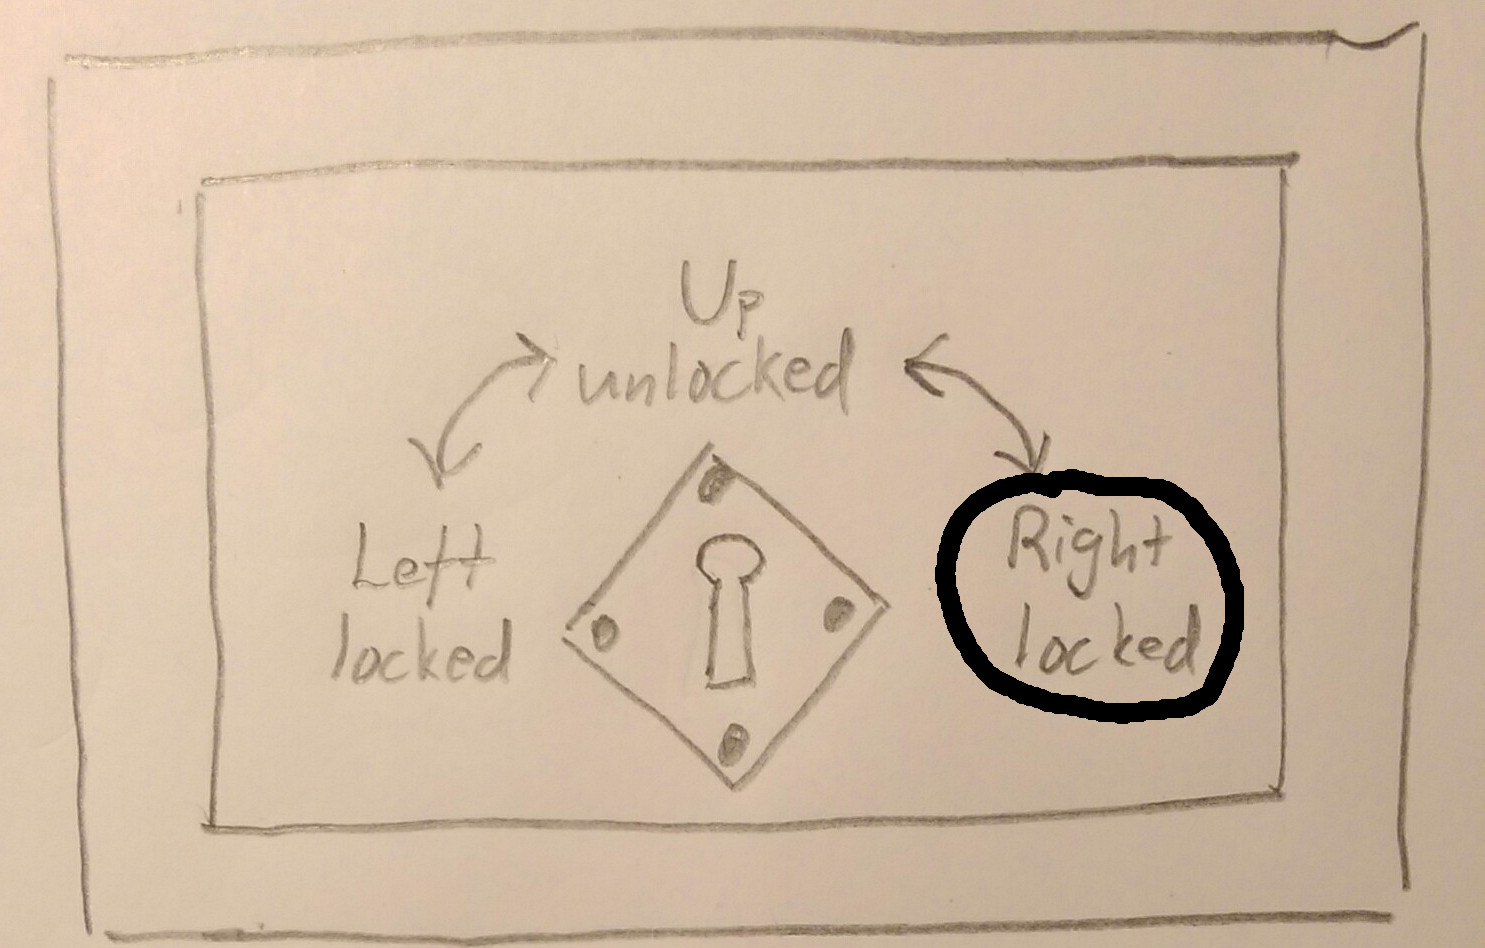 Up
unlocked
Left
locked
Right
locked